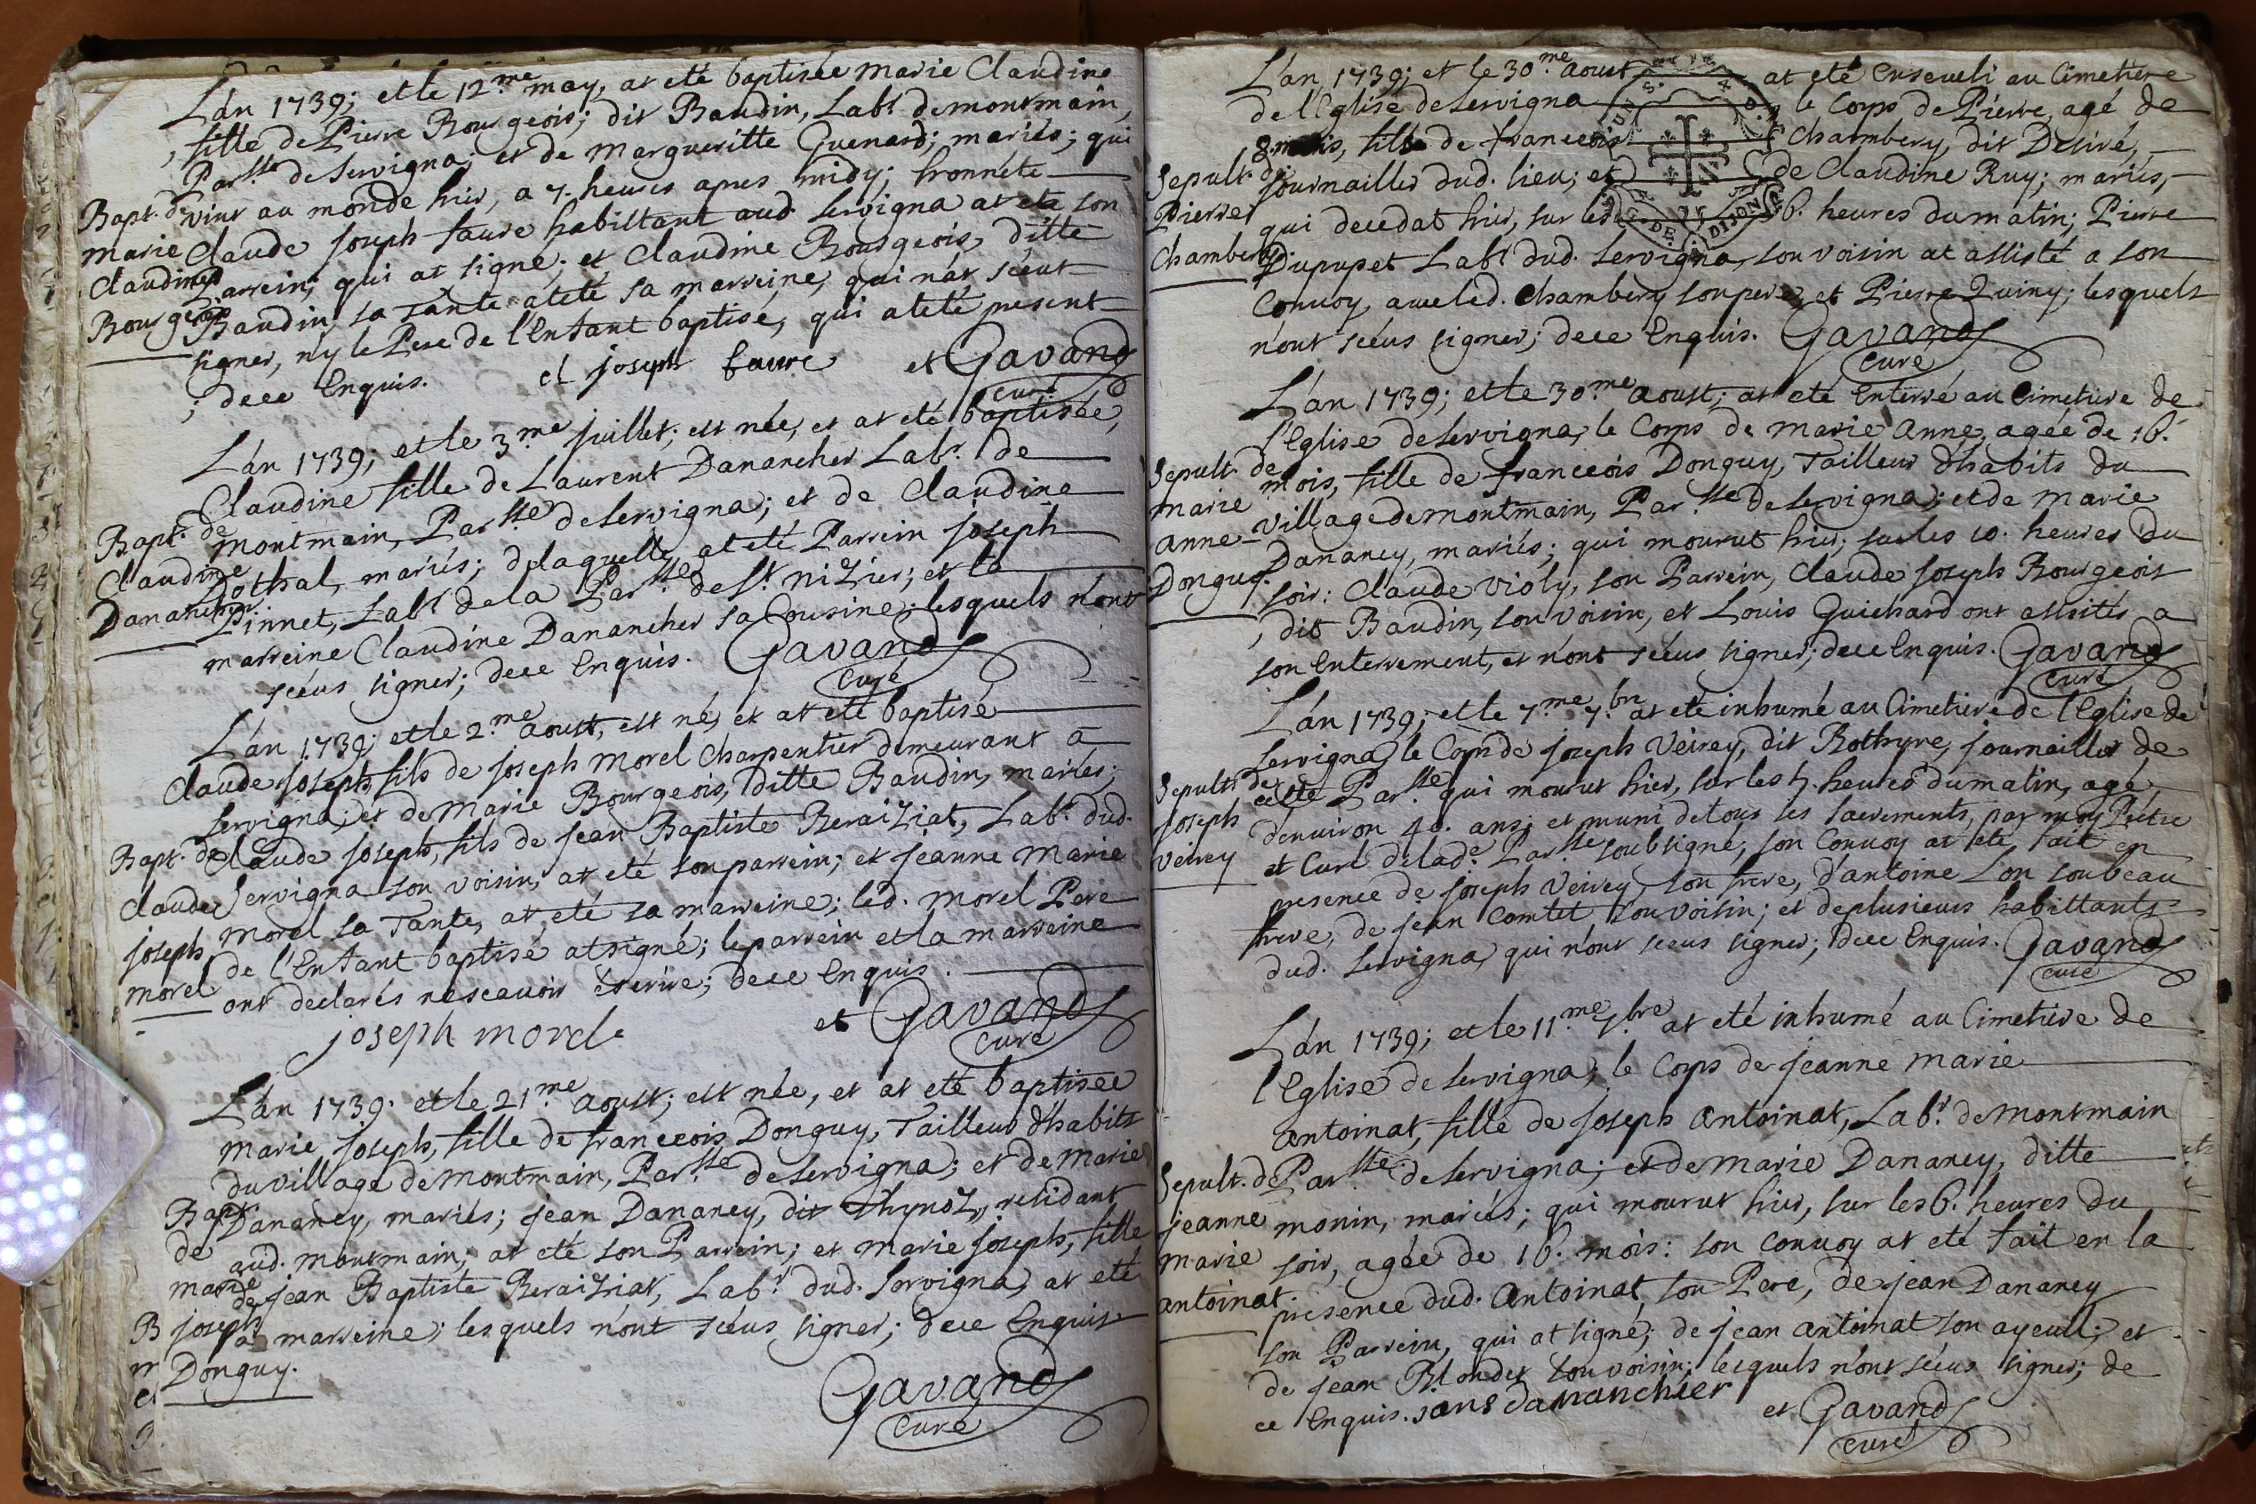 L'an 1739; et le 12.me may, at eté baptisée marie Claudine
, fille de Pierre Bourgeois; dit Baudin, Lab.r de montmain,
Par.sse de Servigna; et de margueritte Guenard; mariés; qui
vint au monde hier, a 7. heures apres midy; honnéte
Claude Joseph faure habittant aud. Servigna at eté son
Parrein; qui at signé; et Claudine Bourgeois, ditte
Baudin, sa tante at eté sa marreine, qui n'at sceut
signer, n'y le Pere de l'Enfant baptisé, qui at eté present
; dece Enquis. cl joseph faure et Gavand
curé
Bapt. de
marie
Claudine
Bourgeois
L'an 1739; et le 3.me juillet; est née, et at eté baptisée,
Claudine fille de Laurent Danancher Lab.r de
montmain, Par.sse de Servigna; et de Claudine
Pothal, mariés; de laquelle, at eté Parrein Joseph
Pinnet, Lab.r de la Par.sse de S.t nizier; et la
marreine Claudine Danancher sa Cousine; lesquels n'ont
scéus signer; dece Enquis. Gavand
Curé
Bapt. de
Claudine
Danancher.
L'an 1739; et le 2.me aoust, est né, et at eté baptisé
Claude Joseph, fils de Joseph Morel Charpentier demeurant a
Servigna; et de Marie Bourgeois, ditte Baudin, mariés;
Claude Joseph, fils de Jean Baptiste Beraiziat, Lab.r dud.
Servigna son voisin, at eté son parrein; et Jeanne Marie
Morel sa Tante, at eté sa marreine; led. morel Pere
de l'Enfant baptisé at signé; le parrein et la marreine
ont declarés ne scavoir écrire; dece Enquis.
joseph morel et Gavand
curé
Bapt. de
Claude
Joseph
Morel
L'an 1739; et le 21.me aoust; est née, et at eté baptisée
Marie Joseph, fille de franceois Donguy, Tailleur d'habits
du village de Montmain, Par.sse de Servigna; et de Marie
Dananey, mariés; Jean Dananey, dit Thynoz, residant
aud. Montmain, at eté son Parrein; et Marie Joseph, fille
de Jean Baptiste Beraiziat, Lab.r dud. Servigna, at eté
sa marreine; lesquels n'ont scéus signer; dece Enquis
Gavand
Curé
Bapt.
de
marie
Joseph
Donguy.
L'an 1739; et le 30.me aoust at eté Enseveli au Cimetiere
de l'Eglise de Servigna le Corps de Pierre, agé de
8. mois, fils de franceois Chambery, dit Desiré,
Journallier dud. lieu; et de Claudine Ruy; mariés,
qui decedat hier, sur les 6. heures du matin; Pierre
Dupupet Lab.r dud. Servigna, son voisin at assisté a son
Convoy, avec led. Chambery son pere, et Pierre Quiny; lesquels
n'ont scéus signer; dece Enquis. Gavand
curé
Sepult. de
Pierre
Chambery.
DE DIJON
L'an 1739; et le 30.me aoust; at eté Enterré au Cimetiere de
l'Eglise de Servigna, le Corps de Marie Anne, agée de 16.
mois, fille de franceois Donguy, Tailleur d'habits du
village de Montmain, Par.sse de Servigna; et de Marie
Dananey, mariés; qui mourut hier, sur les 10. heures du
soir: Claude Violy, son Parrein, Claude Joseph Bourgeois
, dit Baudin, son voisin, et Louis Guichard ont assités a
son Enterrement, et n'ont scéus signer; dece Enquis. Gavand
Curé
Sepult. de
marie
anne
Donguy.
L'an 1739; et le 7.me 7.bre at eté inhumé au Cimetiere de l'Eglise de
Servigna, le Corps de Joseph Veirey, dit Rothyre, journallier de
cette Par.sse, qui mourut hier, sur les 5. heures du matin, agé
d'environ 40. ans; et muni de tous les sacrements, par moy Prétre
et Curé de lad.e Par.sse soubsigné; son Convoy at eté fait en
presence de Joseph Veirey, son frere, d'antoine L'on son beau
frere, de Jean Comtet son voisin; et de plusieurs habittants
dud. Servigna, qui n'ont sceus signer; dece Enquis. Gavand
curé
Sepult. de
Joseph
Veirey
L'an 1739; et le 11.me 7.bre at eté inhumé au Cimetiere de
l'Eglise de Servigna, le Corps de Jeanne Marie
Antoinat, fille de Joseph Antoinat, Lab.r de Montmain
Par.sse de Servigna; et de Marie Dananey, ditte
Monin, mariés; qui mourut hier, sur les 6. heures du
soir, agée de 16. mois: son Convoy at eté fait en la
présence dud. Antoinat, son Pere, de Jean Dananey
son Parrein, qui at signé; de Jean Antoinat son ayeul; et
de Jean Blondet son voisin; lesquels n'ont scéus signer; de
ce Enquis. jans dananchier et Gavand
curé
Sepult. de
Jeanne
Marie
Antoinat.